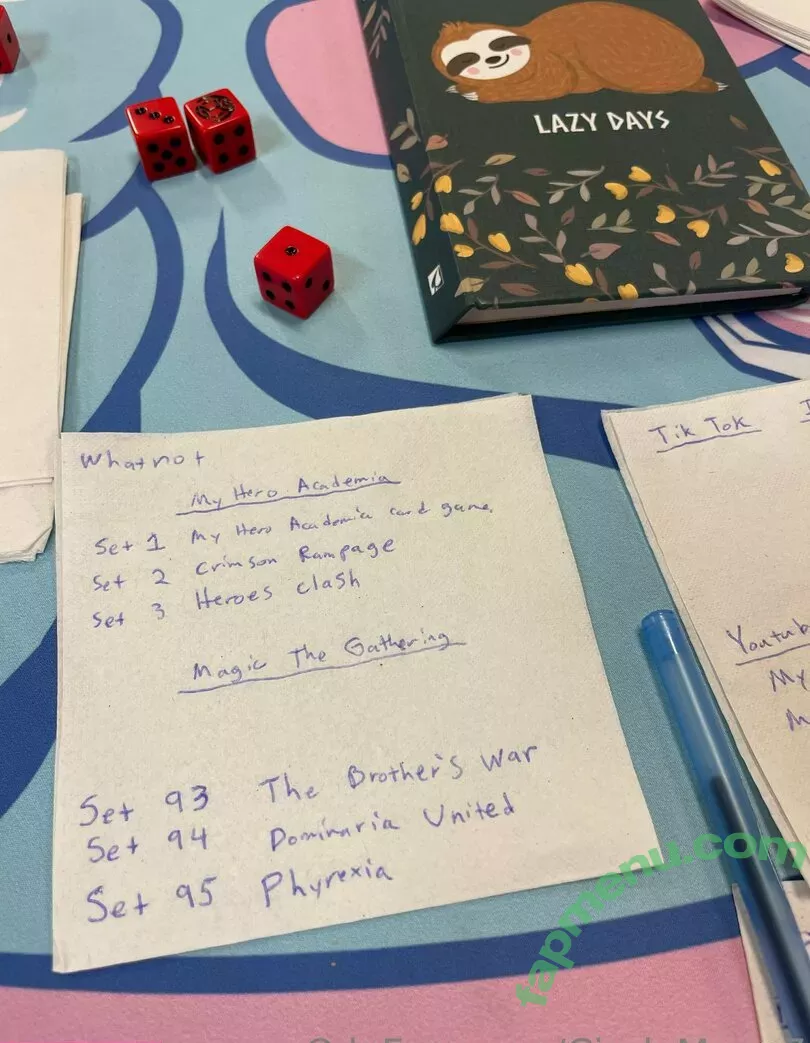 LAZY DAYS
Whatnot
My Hero Academia
Set 1 My Hero Academia card game.
Set 2 Crimson Rampage
Set 3 Heroes clash
Magic The Gathering
Set 93 The Brother's War
Set 94 Dominaria United
Set 95 Phyrexia
Tik Tok
My
fapmenu.com